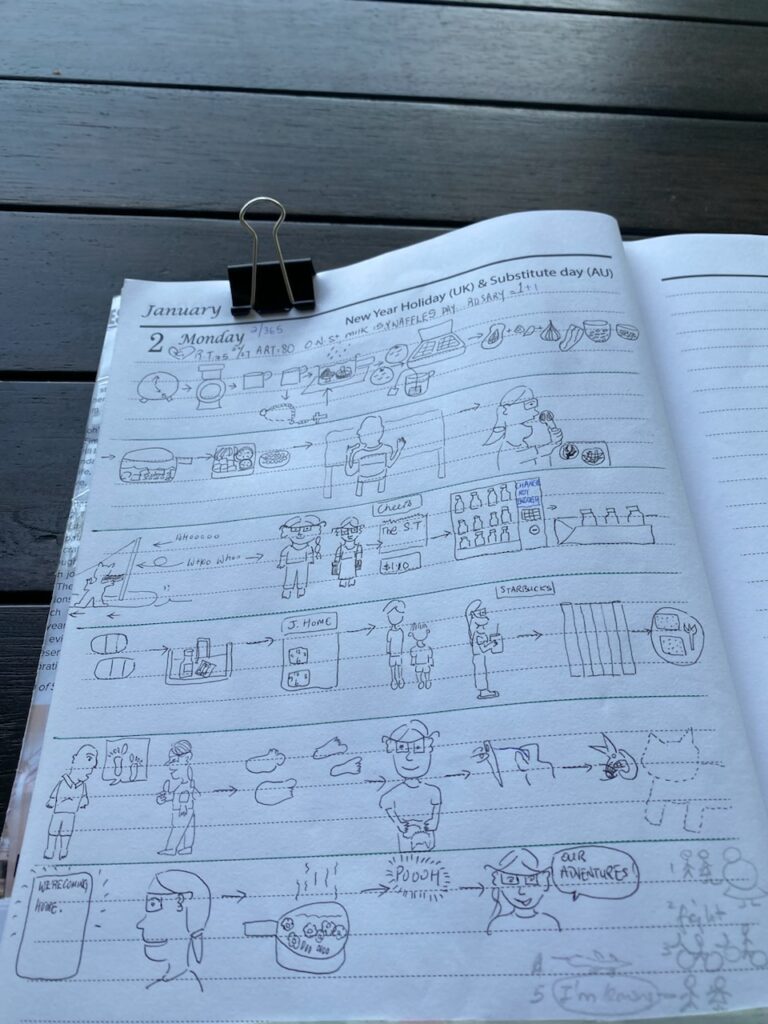 January
New Year Holiday (UK) & Substitute day (AU)
2 Monday 2/365
ART:80 O.N.S+ MILK WAFFLES DAY ROSARY = 1+1
AHOOOOO
WHOO WHOO
Cheers
The S.T
$1.10
CHANGE NOT ENOUGH
J. HOME
STARBUCKS
WE'RE COMING HOME.
POOOH
OUR ADVENTURES!
1
2 fight
3
5 I'm leaving